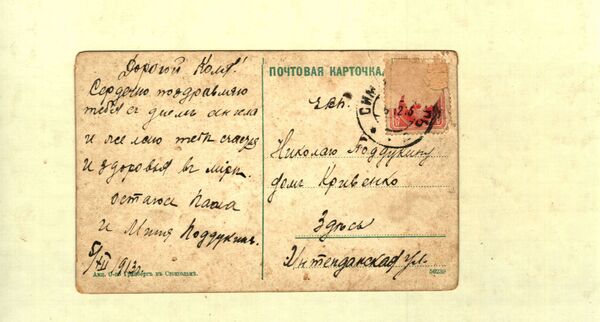 Дорогой Коля!
Сердечно поздравляю
тебя съ днемъ ангела
и желаю тебѣ счастья
и здоровья въ мірѣ.
остаюсь Паша
и Митя Поддукинъ.
5/XII 1913
Акц. О-во Гранбергъ въ Стокгольмѣ.
ПОЧТОВАЯ КАРТОЧКА
Евп.
Николаю Поддукину
домъ Кривенко
Здѣсь
Интенданская ул.
СИМ